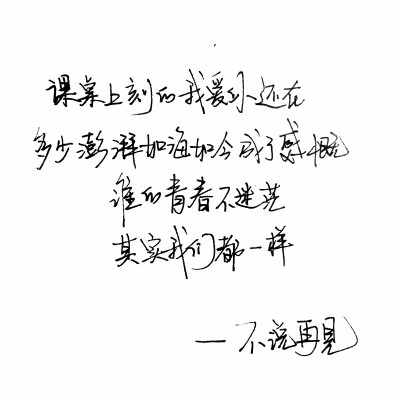 课桌上刻的我爱你还在
多少澎湃如海如今成了感慨
谁的青春不迷茫
其实我们都一样
—不说再见